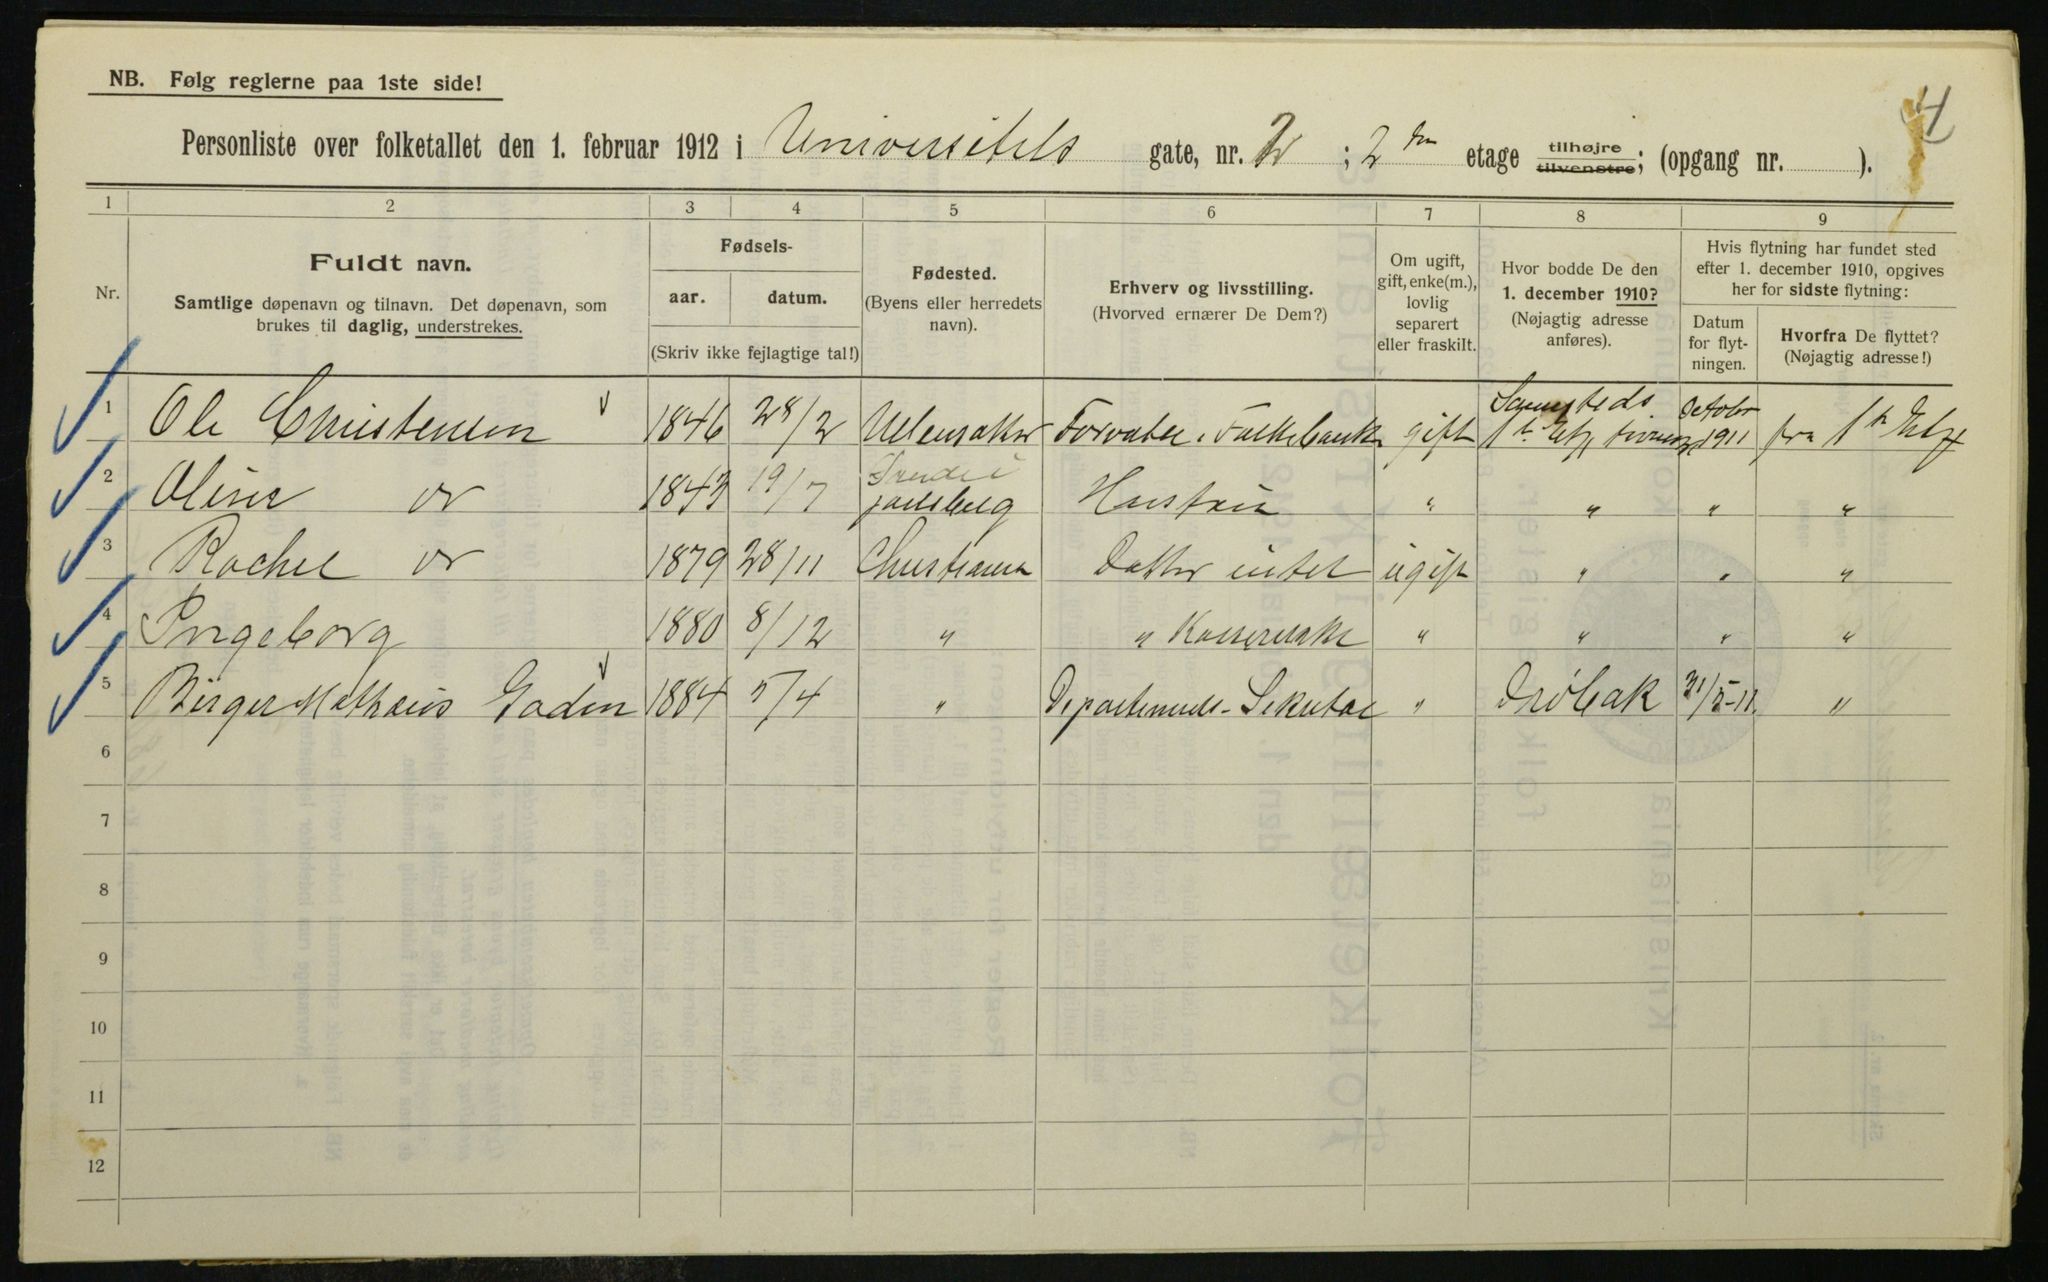 NB. Følg reglerne paa 1ste side!
4
Personliste over folketallet den 1. februar 1912 i Universitets gate, nr. 2 ; 2den etage tilhøjre tilvenstre; (opgang nr. ).
1 2 3 4 5 6 7 8 9
Nr.
Fuldt navn.
Samtlige døpenavn og tilnavn. Det døpenavn, som
brukes til daglig, understrekes.
Fødsels-
aar. datum.
(Skriv ikke fejlagtige tal!)
Fødested.
(Byens eller herredets
navn).
Erhverv og livsstilling.
(Hvorved ernærer De Dem?)
Om ugift,
gift, enke(m.),
lovlig
separert
eller fraskilt.
Hvor bodde De den
1. december 1910?
(Nøjagtig adresse
anføres).
Hvis flytning har fundet sted
efter 1. december 1910, opgives
her for sidste flytning:
Datum
for flyt-
ningen.
Hvorfra De flyttet?
(Nøjagtig adresse!)
1 Ole Christensen 1846 28/2 Ullensaker Folkebank gift 1ste October 1911 fra 1ste Etg
2 Oline 1843 19/7 Jarlsberg Hustru " " " "
3 Rachel 1879 28/11 Christiania Datter intet ugift " " "
4 Ingeborg 1880 8/12 " " " " " "
5 Birger Mathæus 1884 5/4 " Departements-Sekretær " Drøbak 31/5-11. "
6
7
8
9
10
11
12